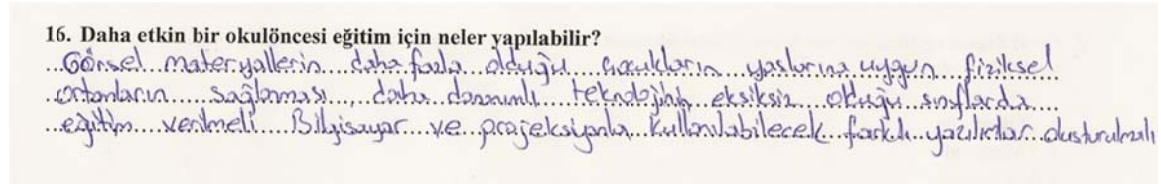 16. Daha etkin bir okulöncesi eğitim için neler yapılabilir?
Görsel materyallerin daha fazla olduğu çocukların yaşlarına uygun fiziksel
ortamların sağlaması, daha donanımlı teknolojinin eksiksiz olduğu sınıflarda
eğitim verilmeli Bilgisayar ve projeksiyonla kullanılabilecek farklı yazılımlar oluşturulmalı